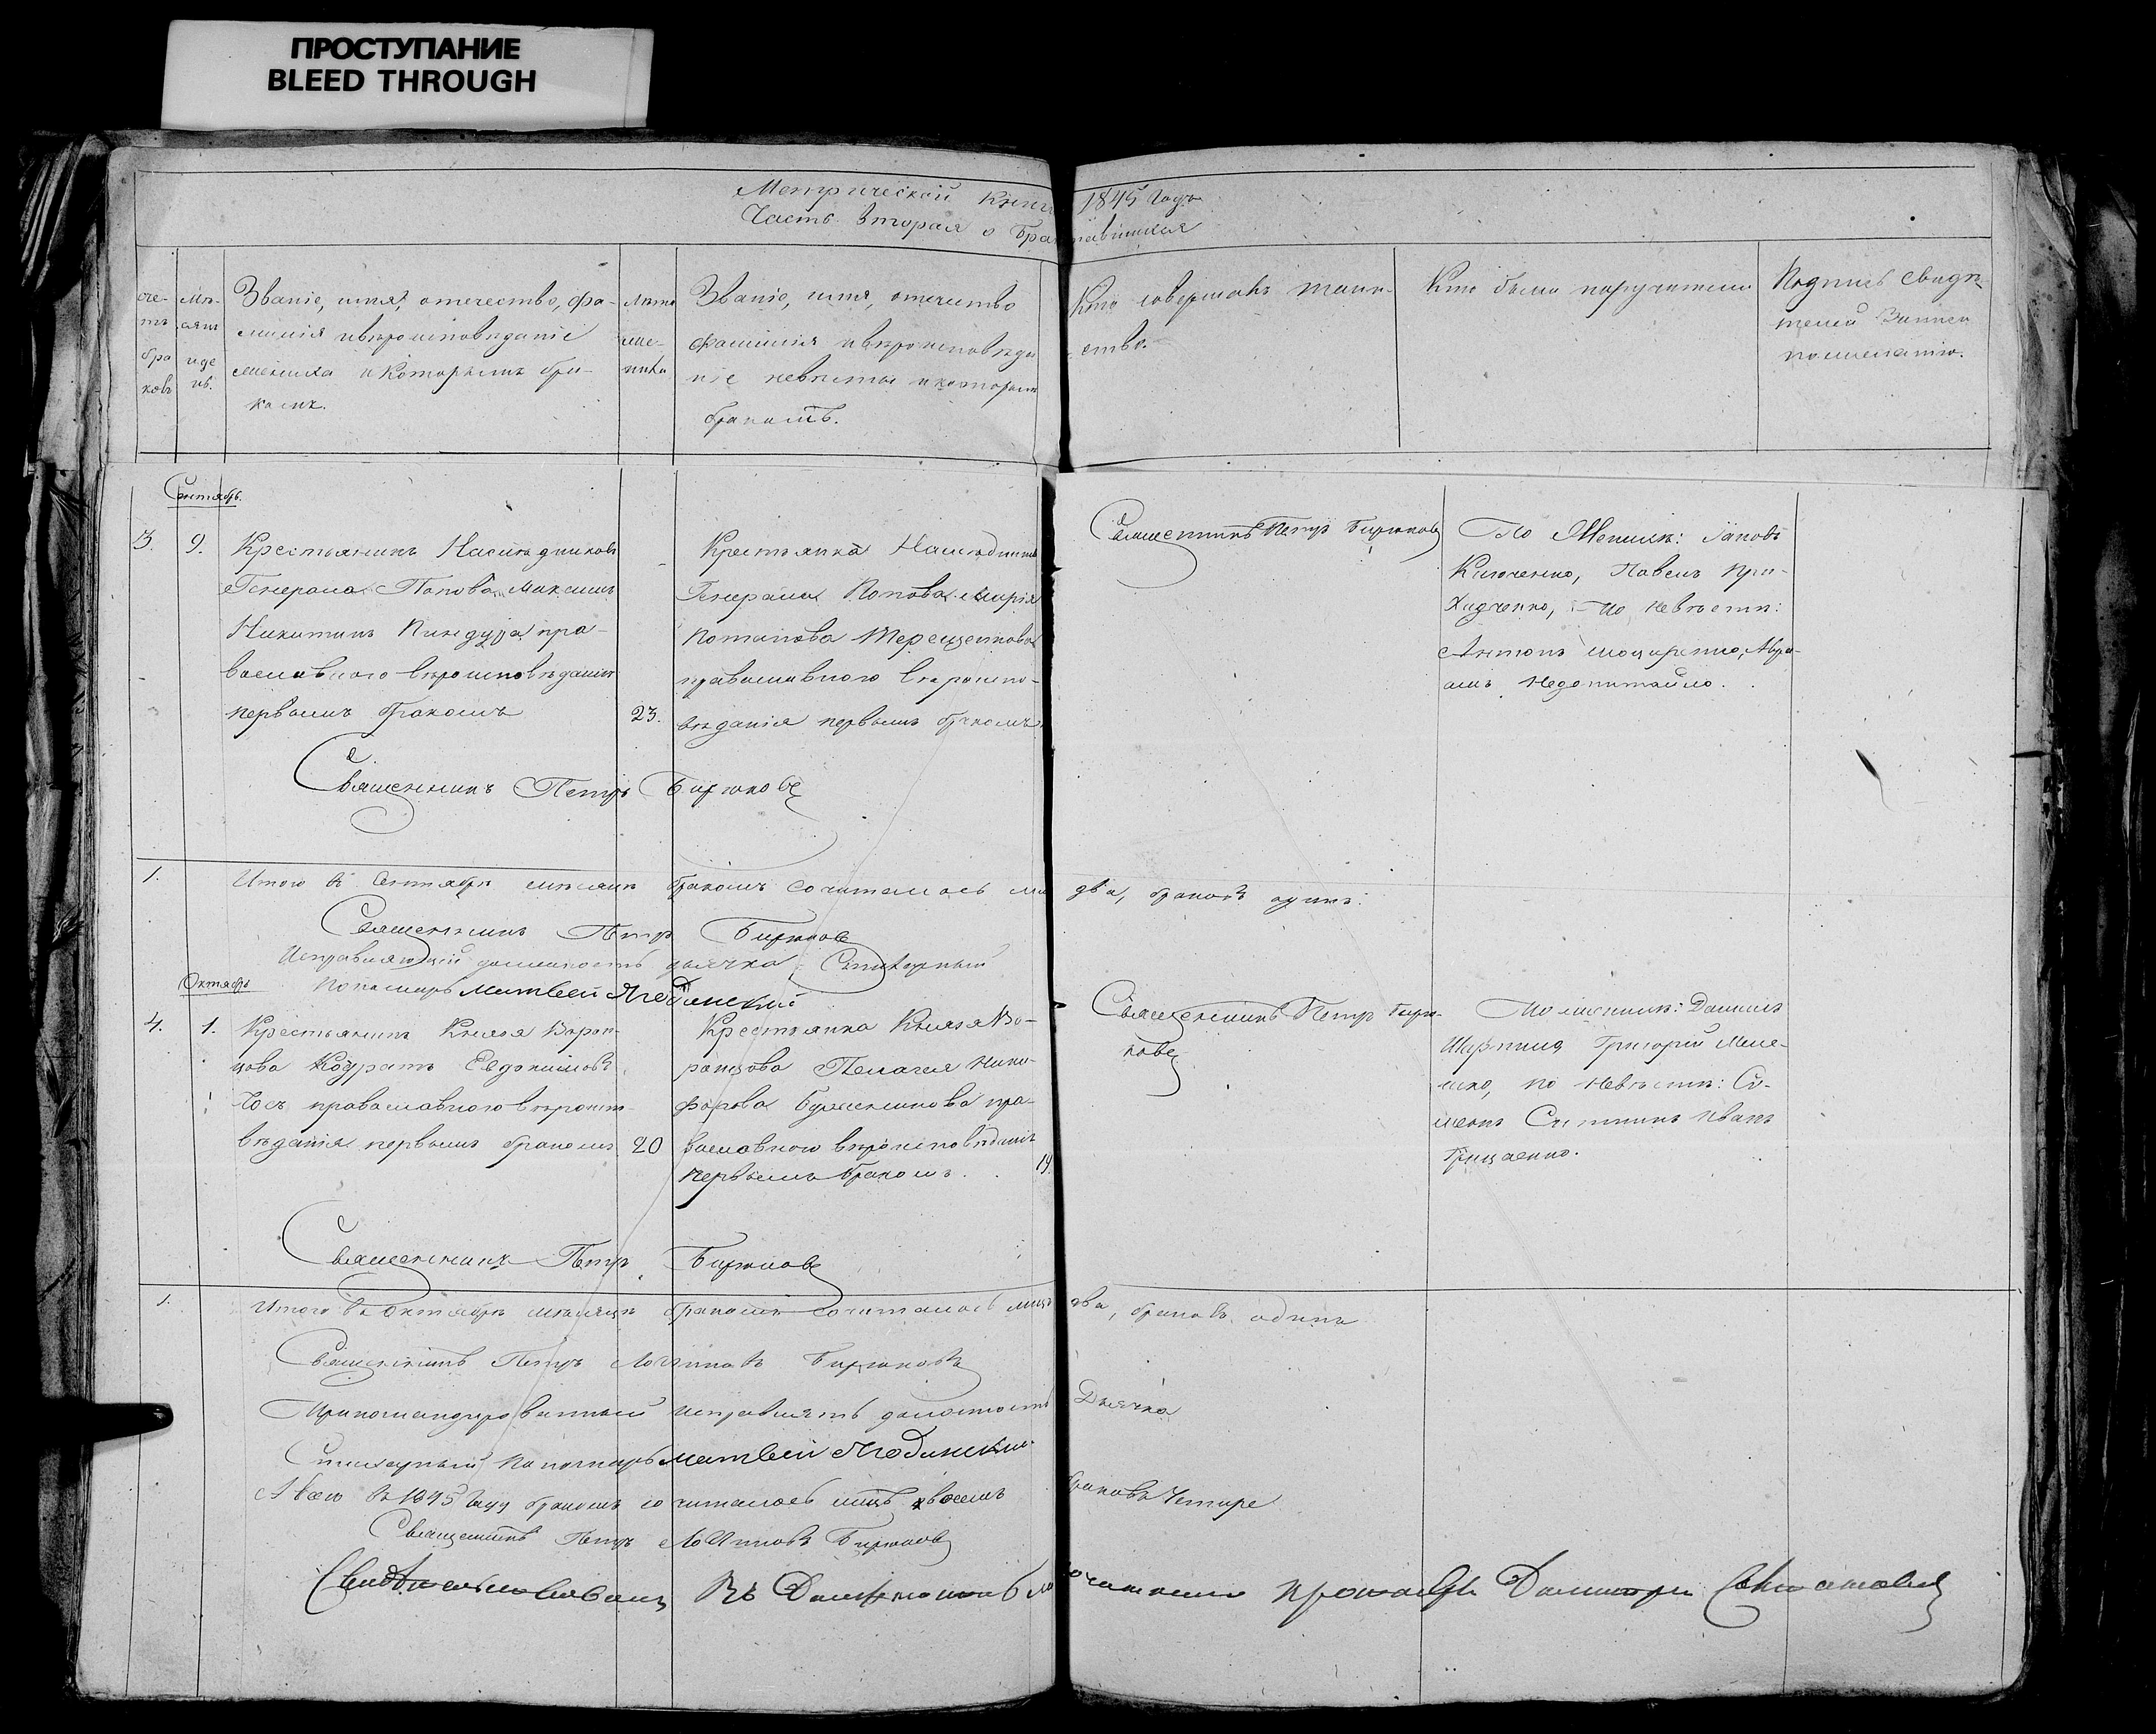 ПРОСТУПАНИЕ
BLEED THROUGH
Метрической Книги 1845 Года
Часть Вторая о Бра
сче-
тъ
бра
ковъ
Мѣ-
сяцъ
и де
нь.
Званіе, имя, отечество, фа-
милія и вѣроисповѣданіе
жениха и которымъ бра-
комъ.
Лѣта
же-
ниха
Званіе, имя, отечество
фамилія и вѣроисповѣда
ніе невѣсты и которымъ
бракомъ.
Кто совершалъ таин-
ство.
Кто были поручители
Подпись свидѣ-
телей
по желанію.
Сентябрь.
3.
9.
Крестьянинъ Наслѣдниковъ
Генерала Попова Максимъ
Никитинъ пра-
вославного вѣроисповѣданія
первымъ бракомъ
23.
Крестьянка Наслѣдниковъ
Генерала Попова Марія
Потапова Терещенкова
православного вѣроиспо-
вѣданія первымъ бракомъ
Священникъ Петръ Бирюковъ
По Женихѣ: Іаковъ
Ключенко, Павелъ При-
ходченко, по невѣстѣ:
Антонъ Авра-
амъ
Священникъ Петръ Бирюковъ
1.
Итого въ Сентябрѣ мѣсяцѣ бракомъ сочиталось два, браковъ одинъ:
Священникъ Петръ Бирюковъ
Исправляющій должность дьячка Стихарный
Пономарь Матвей Ягодинскій
Октябрь
4.
1.
Крестьянинъ Князя Ворон-
цова Кодратъ Евдокимовъ
православного вѣроиспо-
вѣданія первымъ бракомъ
20
Крестьянка Князя Во-
ронцова Пелагея Ники-
форова пра-
вославного вѣроисповѣданія
первымъ бракомъ.
19.
Священникъ Петръ Бирю-
ковъ
По женихѣ: Даніилъ
Григорій Меле-
шко, по Невѣстѣ: Си-
меонъ Иванъ
Грицаенко.
Священникъ Петръ Бирюковъ
1.
Итого въ Октябрѣ мѣсяцѣ бракомъ сочиталось лицъ два, браковъ одинъ
Священникъ Петръ Логиновъ Бирюковъ
Прикомандированный исправлять должность Дьячка
Стихарный Пономарь Матвей Ягодинскій
А всего въ 1845 году бракомъ сочиталось лицъ восемь браковъ Четыре
Священникъ Петръ Логиновъ Бирюковъ
Свидѣтельствовалъ Въ Протоіерей Димитрій